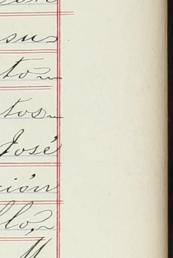 su
to
tos
José
ción
llo,